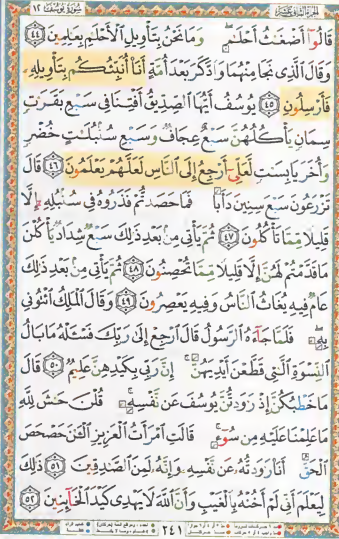 الجزء الثاني عشر سورة يوسف ١٢
قَالُوٓا۟ أَضْغَـٰثُ أَحْلَـٰمٍ ۖ وَمَا نَحْنُ بِتَأْوِيلِ ٱلْأَحْلَـٰمِ بِعَـٰلِمِينَ ٤٤
وَقَالَ ٱلَّذِى نَجَا مِنْهُمَا وَٱدَّكَرَ بَعْدَ أُمَّةٍ أَنَا۠ أُنَبِّئُكُم بِتَأْوِيلِهِۦ
فَأَرْسِلُونِ ٤٥ يُوسُفُ أَيُّهَا ٱلصِّدِّيقُ أَفْتِنَا فِى سَبْعِ بَقَرَٰتٍ
سِمَانٍ يَأْكُلُهُنَّ سَبْعٌ عِجَافٌ وَسَبْعِ سُنۢبُلَـٰتٍ خُضْرٍ
وَأُخَرَ يَابِسَـٰتٍ لَّعَلِّىٓ أَرْجِعُ إِلَى ٱلنَّاسِ لَعَلَّهُمْ يَعْلَمُونَ ٤٦ قَالَ
تَزْرَعُونَ سَبْعَ سِنِينَ دَأَبًا فَمَا حَصَدتُّمْ فَذَرُوهُ فِى سُنۢبُلِهِۦٓ إِلَّا
قَلِيلًا مِّمَّا تَأْكُلُونَ ٤٧ ثُمَّ يَأْتِى مِنۢ بَعْدِ ذَٰلِكَ سَبْعٌ شِدَادٌ يَأْكُلْنَ
مَا قَدَّمْتُمْ لَهُنَّ إِلَّا قَلِيلًا مِّمَّا تُحْصِنُونَ ٤٨ ثُمَّ يَأْتِى مِنۢ بَعْدِ ذَٰلِكَ
عَامٌ فِيهِ يُغَاثُ ٱلنَّاسُ وَفِيهِ يَعْصِرُونَ ٤٩ وَقَالَ ٱلْمَلِكُ ٱئْتُونِى
بِهِۦ ۖ فَلَمَّا جَآءَهُ ٱلرَّسُولُ قَالَ ٱرْجِعْ إِلَىٰ رَبِّكَ فَسْـَٔلْهُ مَا بَالُ
ٱلنِّسْوَةِ ٱلَّـٰتِى قَطَّعْنَ أَيْدِيَهُنَّ ۚ إِنَّ رَبِّى بِكَيْدِهِنَّ عَلِيمٌ ٥٠ قَالَ
مَا خَطْبُكُنَّ إِذْ رَٰوَدتُّنَّ يُوسُفَ عَن نَّفْسِهِۦ ۚ قُلْنَ حَـٰشَ لِلَّهِ
مَا عَلِمْنَا عَلَيْهِ مِن سُوٓءٍ ۚ قَالَتِ ٱمْرَأَتُ ٱلْعَزِيزِ ٱلْـَٔـٰنَ حَصْحَصَ
ٱلْحَقُّ أَنَا۠ رَٰوَدتُّهُۥ عَن نَّفْسِهِۦ وَإِنَّهُۥ لَمِنَ ٱلصَّـٰدِقِينَ ٥١ ذَٰلِكَ
لِيَعْلَمَ أَنِّى لَمْ أَخُنْهُ بِٱلْغَيْبِ وَأَنَّ ٱللَّهَ لَا يَهْدِى كَيْدَ ٱلْخَآئِنِينَ ٥٢
٢٤١